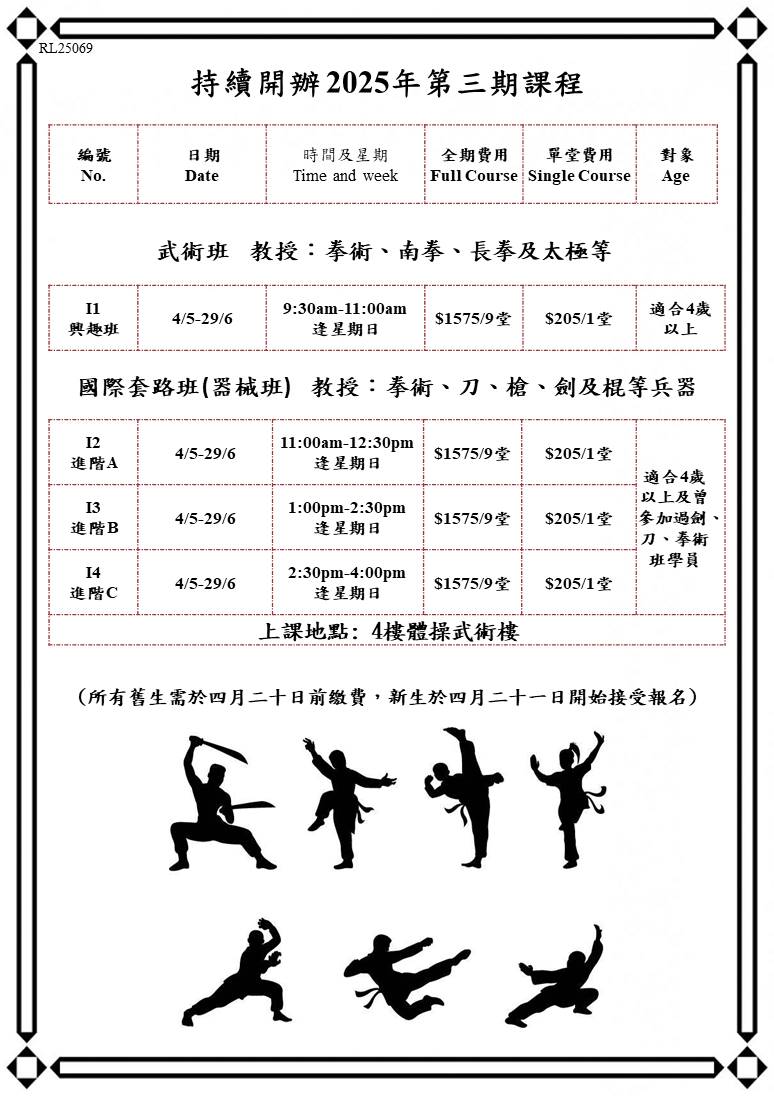 RL25069
持續開辦2025年第三期課程
編號 日期 時間及星期 全期費用 單堂費用 對象
No. Date Time and week Full Course Single Course Age
武術班 教授：拳術、南拳、長拳及太極等
I1
興趣班
4/5-29/6
9:30am-11:00am
逢星期日
$1575/9堂
$205/1堂
適合4歲
以上
國際套路班(器械班) 教授：拳術、刀、槍、劍及棍等兵器
I2
進階A
4/5-29/6
11:00am-12:30pm
逢星期日
$1575/9堂
$205/1堂
適合4歲
以上及曾
參加過劍、
刀、拳術
班學員
I3
進階B
4/5-29/6
1:00pm-2:30pm
逢星期日
$1575/9堂
$205/1堂
I4
進階C
4/5-29/6
2:30pm-4:00pm
逢星期日
$1575/9堂
$205/1堂
上課地點: 4樓體操武術樓
(所有舊生需於四月二十日前繳費，新生於四月二十一日開始接受報名)